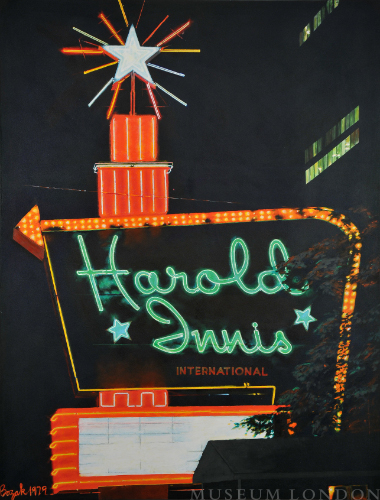 Harold
Innis
INTERNATIONAL
Bozak 1979
MUSEUM LONDON